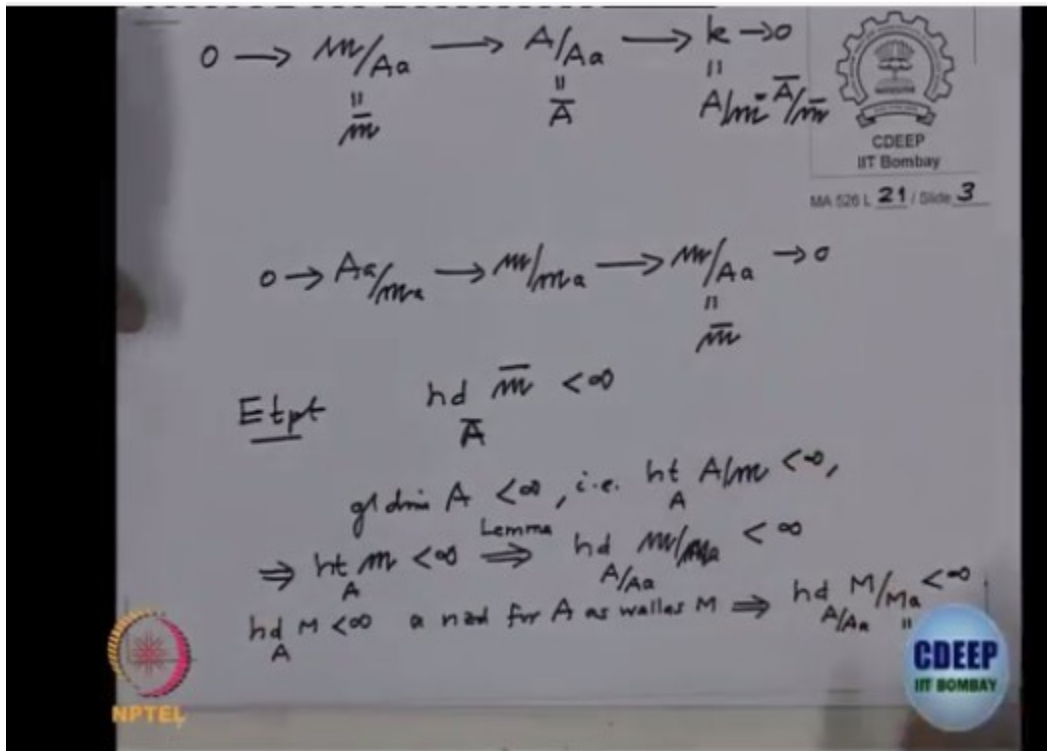 0 → m/Aa → A/Aa → k → 0
|| || ||
m̄ Ā A/m = Ā/m̄
CDEEP
IIT Bombay
MA 526 L 21 / Slide 3
0 → Aa/ma → m/ma → m/Aa → 0
||
m̄
Etpt hd m̄ < ∞
Ā
gl dim A < ∞, i.e. ht A/m < ∞,
A
⇒ ht m < ∞ Lemma ⇒ hd m/ma < ∞
A A/Aa
hd M < ∞ a nzd for A as wellas M ⇒ hd M/Ma < ∞
A A/Aa ||
NPTEL
CDEEP
IIT BOMBAY